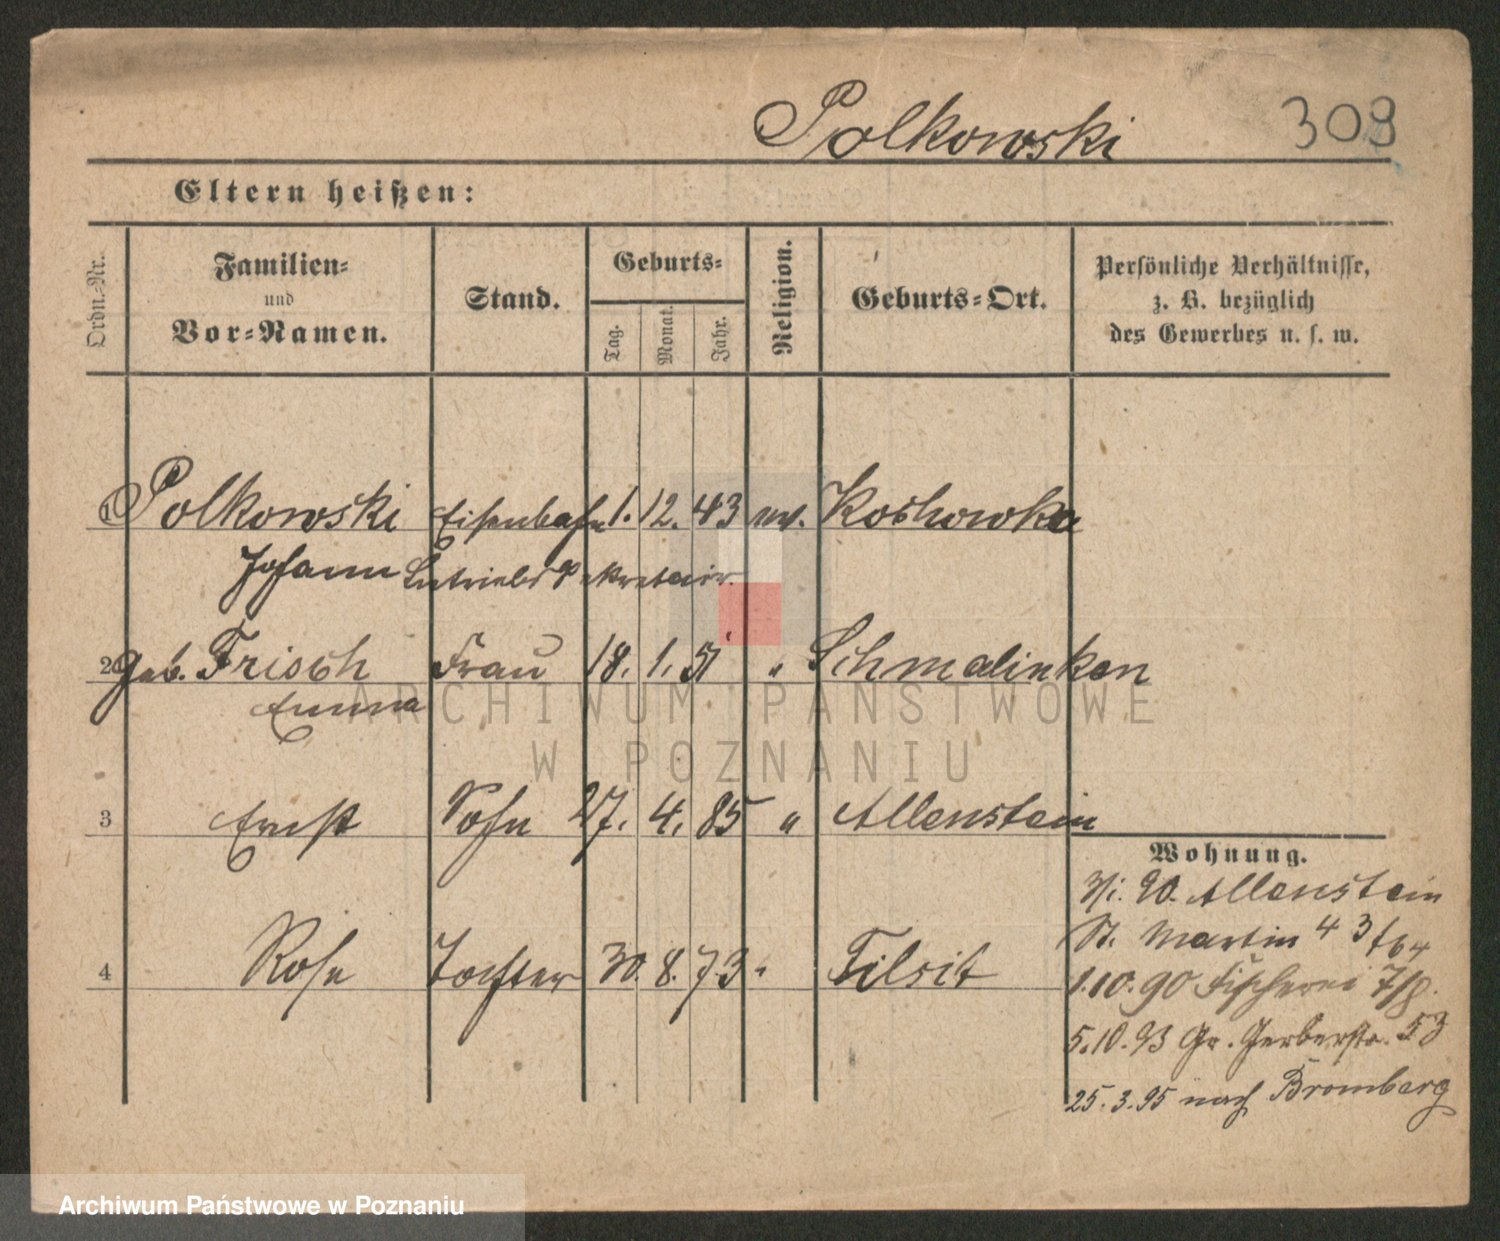 Polkowski 309
Eltern heißen:
Ordn.-Nr.
Familien-
und
Vor-Namen.
Stand.
Geburts-
Tag.
Monat.
Jahr.
Religion.
Geburts-Ort.
Persönliche Verhältnisse,
z. B. bezüglich
des Gewerbes u. s. w.
1 Polkowski Eisenbahn 1. 12. 43 ev. Koslowka
Johann Betriebs Sekretair.
2 geb. Frisch Frau 18. 1. 51 " Schmalinken
Emma
3 Ernst Sohn 27. 4. 85 " Allenstein
Wohnung.
90. Allenstein
St. Martin 43
4 Rosa Tochter 30. 8. 73 " Tilsit
1.10.90 Fischerei 7/8.
5.10.93 Gr. Gerberstr. 53
25.3.95 nach Bromberg
ARCHIWUM PAŃSTWOWE
W POZNANIU
Archiwum Państwowe w Poznaniu